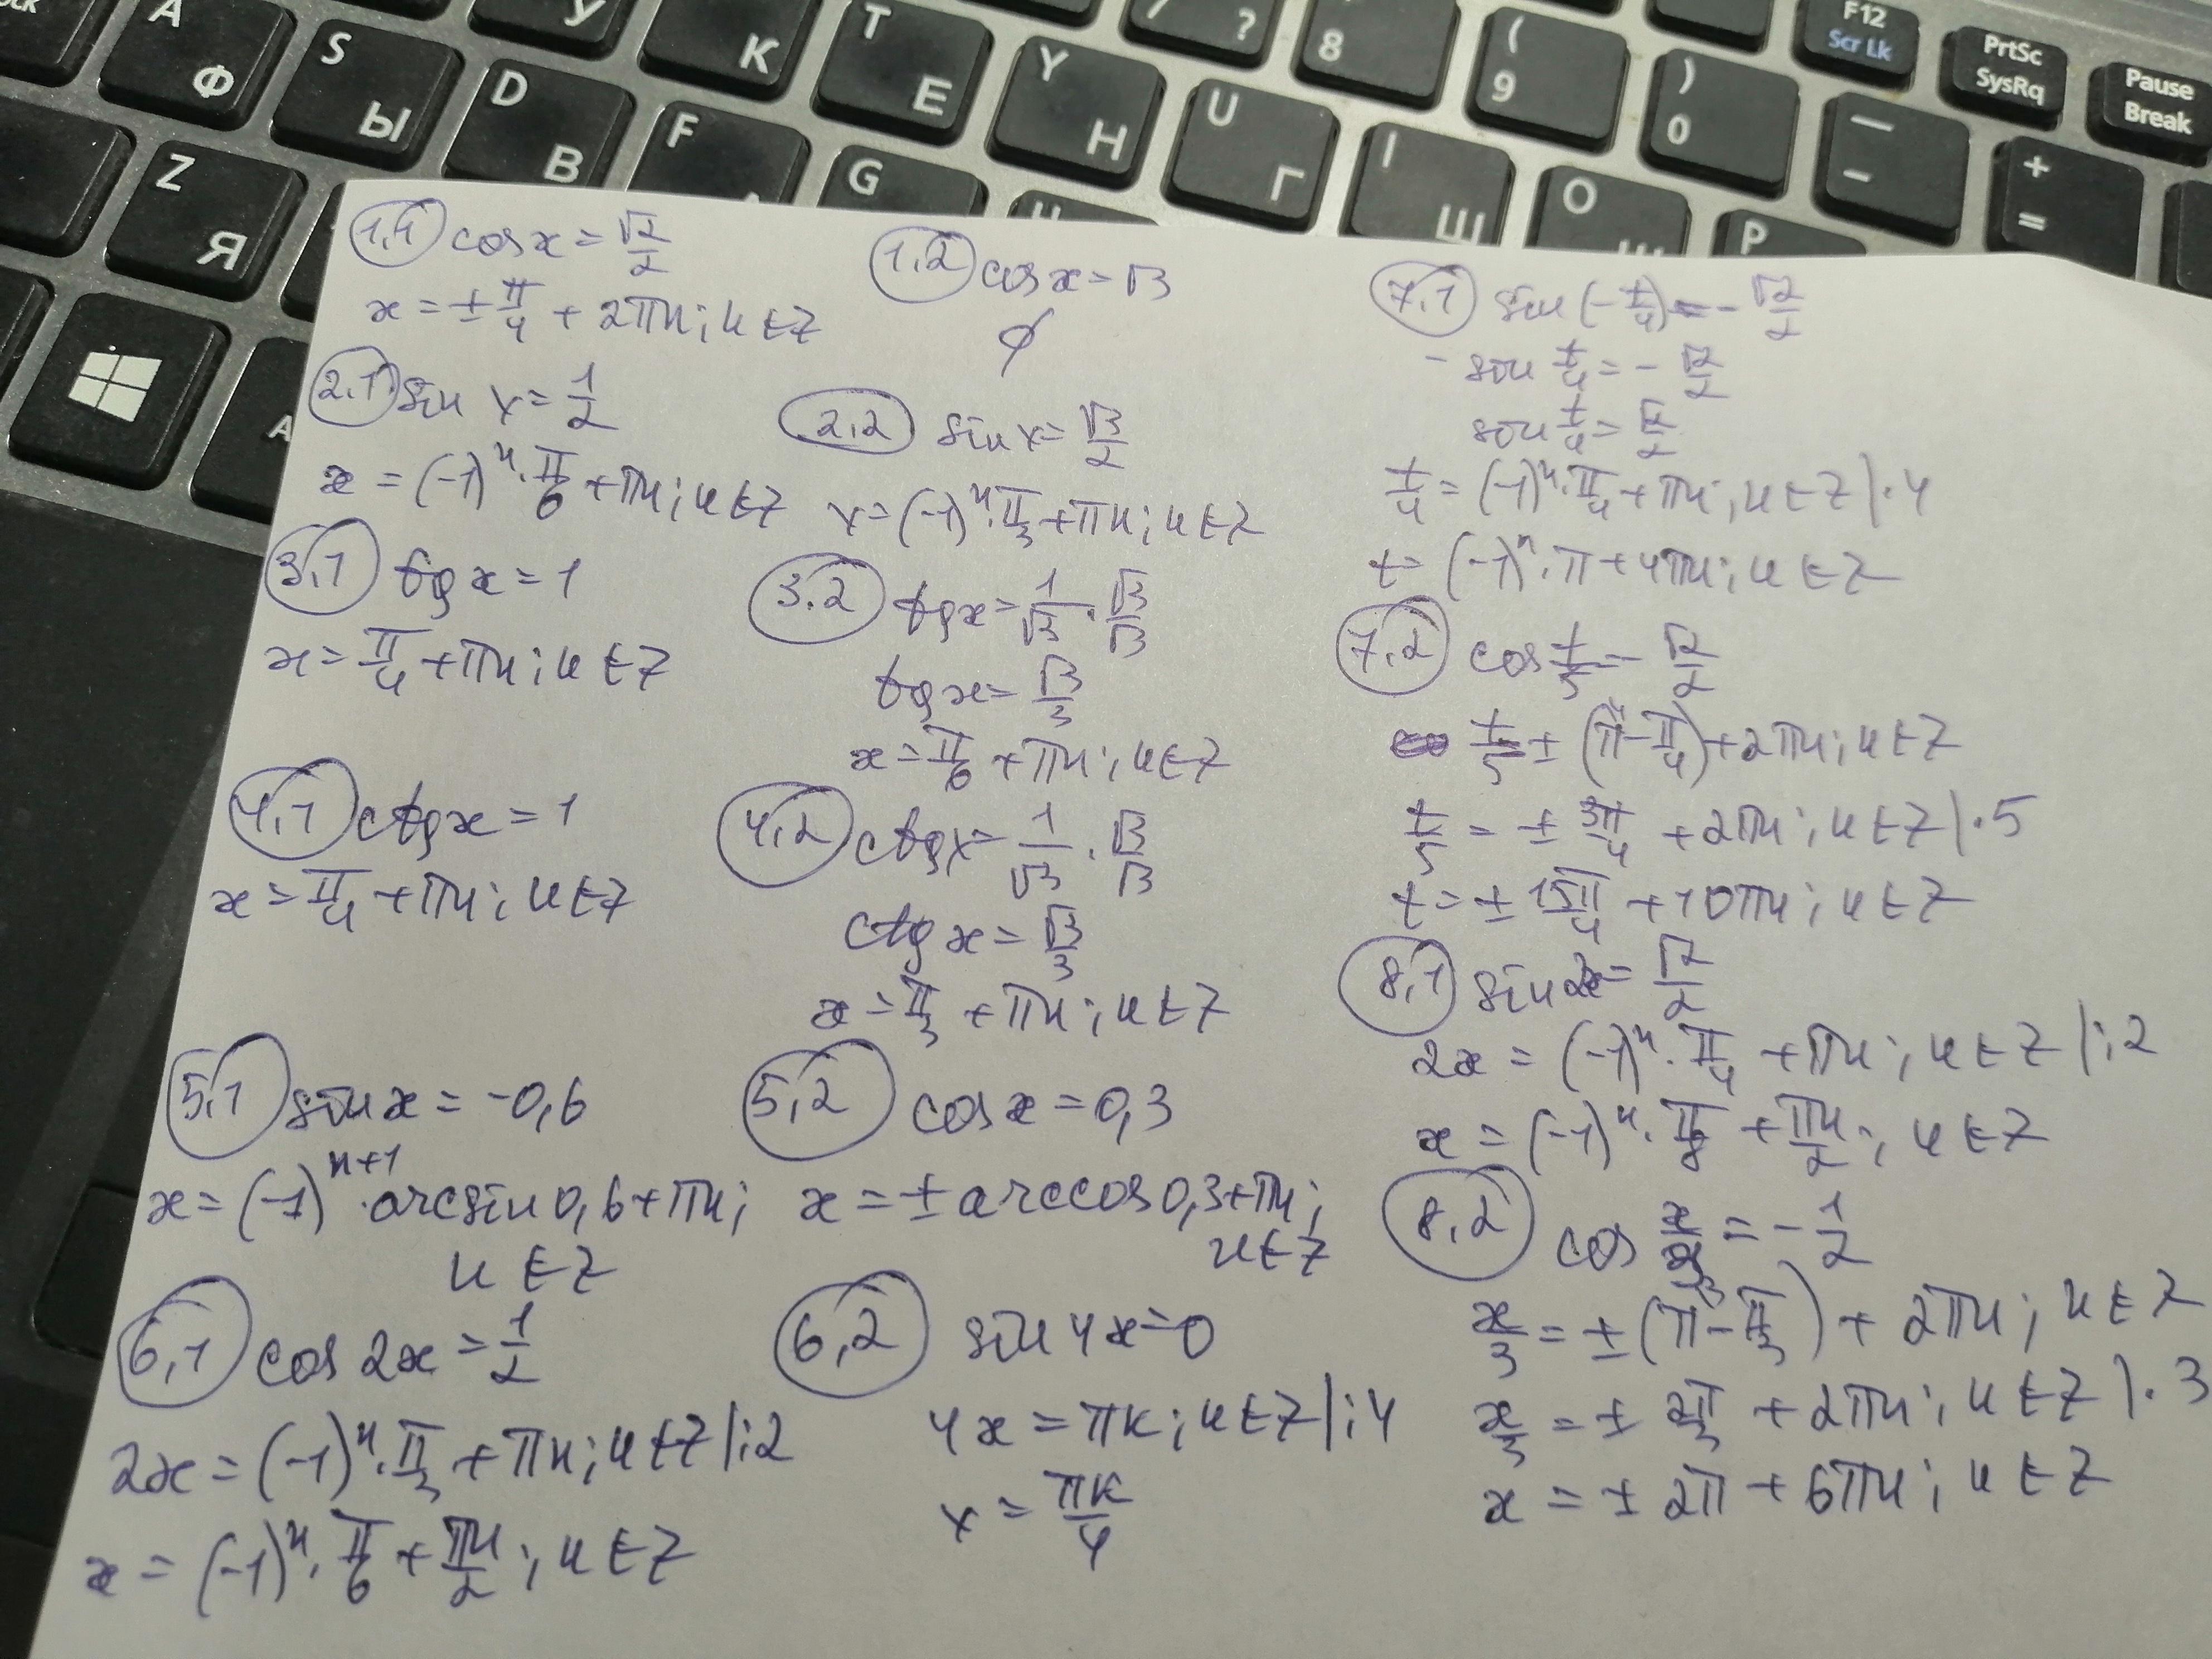 A
Ф
S
Ы
D
В
У
К
T
Е
Y
Н
U
Г
I
Ш
O
P
F
G
Z
Я
7
?
8
(
9
)
0
—
-
+
=
F12
Scr Lk
PrtSc
SysRq
Pause
Break
1,1 cosx = √2/2
x = ± π/4 + 2πn; n ∈ Z
1,2 cosx = √3
∅
2.1 sin x = 1/2
x = (-1)^n · π/6 + πn; n ∈ Z
2,2 sin x = √3/2
x = (-1)^n · π/3 + πn; n ∈ Z
3,1 tgx = 1
x = π/4 + πn; n ∈ Z
3.2 tgx = 1/√3 · √3/√3
tgx = √3/3
x = π/6 + πn; n ∈ Z
4,1 ctgx = 1
x = π/4 + πn; n ∈ Z
4,2 ctgx = 1/√3 · √3/√3
ctgx = √3/3
x = π/3 + πn; n ∈ Z
5,1 sinx = -0,6
x = (-1)^n+1 · arcsin 0,6 + πn;
n ∈ Z
5,2 cosx = 0,3
x = ± arccos 0,3 + πn;
n ∈ Z
6,1 cos 2x = 1/2
2x = (-1)^n · π/3 + πn; n ∈ Z |:2
x = (-1)^n · π/6 + πn/2; n ∈ Z
6,2 sin 4x = 0
4x = πk; n ∈ Z |:4
x = πk/4
7,1 sin (- t/4) = - √2/2
- sin t/4 = - √2/2
sin t/4 = √2/2
t/4 = (-1)^n · π/4 + πn; n ∈ Z | · 4
t = (-1)^n · π + 4πn; n ∈ Z
7,2 cos t/5 = - √2/2
t/5 ± (π - π/4) + 2πn; n ∈ Z
t/5 = ± 3π/4 + 2πn; n ∈ Z | · 5
t = ± 15π/4 + 10πn; n ∈ Z
8,1 sin 2x = √2/2
2x = (-1)^n · π/4 + πn; n ∈ Z |:2
x = (-1)^n · π/8 + πn/2; n ∈ Z
8,2 cos x/3 = - 1/2
x/3 = ± (π - π/3) + 2πn; n ∈ Z
x/3 = ± 2π/3 + 2πn; n ∈ Z | · 3
x = ± 2π + 6πn; n ∈ Z